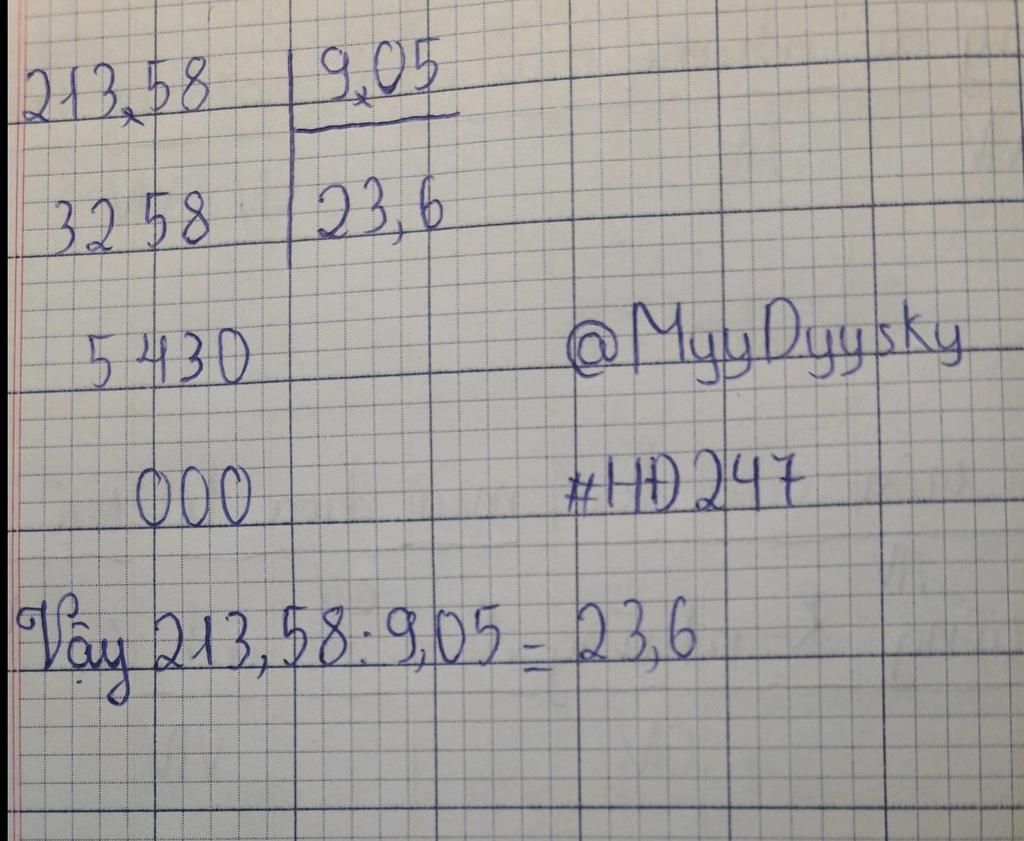 213,58 | 9,05
3258 | 23,6
5430
@MyyDyysky
000
#HĐ247
Vậy 213,58:9,05 = 23,6